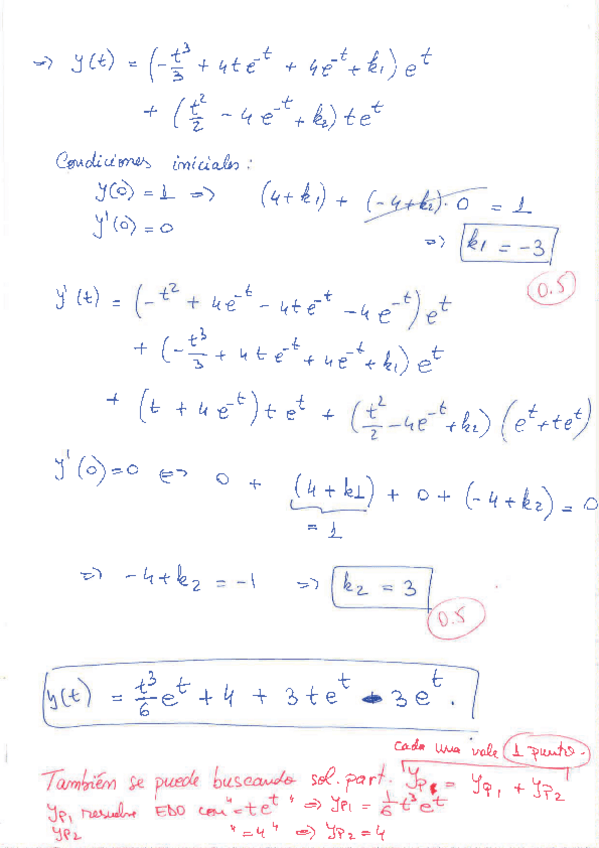 ⇒ y(t) = (-t³/3 + 4te^-t + 4e^-t + k₁) e^t
+ (t²/2 - 4e^-t + k₂) te^t
Condiciones iniciales:
y(0) = 1 ⇒ (4+k₁) + (-4+k₂)·0 = 1
y'(0) = 0
⇒ k₁ = -3
0.5
y'(t) = (-t² + 4e^-t - 4te^-t - 4e^-t) e^t
+ (-t³/3 + 4te^-t + 4e^-t + k₁) e^t
+ (t + 4e^-t) te^t + (t²/2 - 4e^-t + k₂) (e^t + te^t)
y'(0) = 0 ⇔ 0 + (4+k1) + 0 + (-4+k₂) = 0
= 1
⇒ -4+k₂ = -1 ⇒ k₂ = 3
0.5
y(t) = t³/6 e^t + 4 + 3te^t - 3e^t.
cada una vale 1 punto.
También se puede buscando sol. part. yp = yp₁ + yp₂
yp₁ resuelve EDO con "=te^t" ⇒ yp₁ = 1/6 t³e^t
yp₂ "=4" ⇒ yp₂ = 4